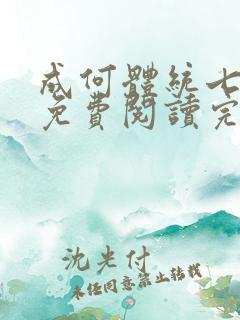 成何體統七
免費閱讀完
沈光付
未经同意禁止转载